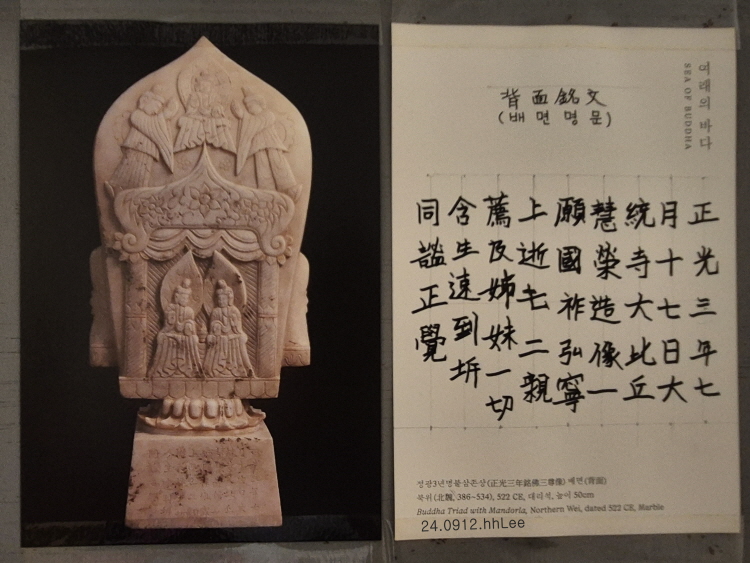 여래의 바다
SEA OF BUDDHA
背面銘文
(배면명문)
正光三年七
月十七日大
統寺大比丘
慧榮造像一
願國祚弘寧
上逝二親
薦及姊妹一切
含生速到圻
同謐正覺
정광3년명불삼존상(正光三年銘佛三尊像) 배면(背面)
북위(北魏, 386~534), 522 CE, 대리석, 높이 50cm
Buddha Triad with Mandorla, Northern Wei, dated 522 CE, Marble
24.0912.hhLee